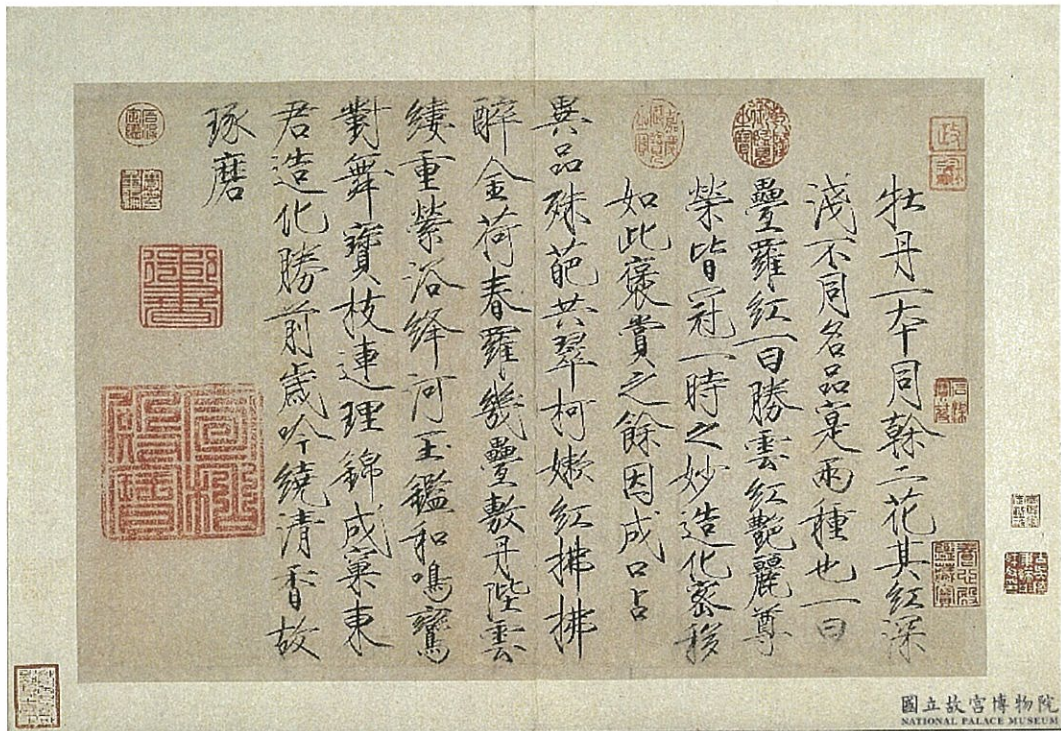 牡丹一本同榦二花其紅深
淺不同名品寔兩種也一曰
疊羅紅一曰勝雲紅艷麗尊
榮皆冠一時之妙造化密移
如此褒賞之餘因成口占
異品殊葩共翠柯嫩紅拂拂
醉金荷春羅幾疊敷丹陛雲
縷重縈浴絳河玉鑑和鳴鸞
對舞寶枝連理錦成窠東
君造化勝前歲吟繞清香故
琢磨
政
龢
乾隆御覽之寶
國立故宮博物院
NATIONAL PALACE MUSEUM